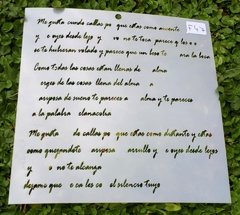 Me gusta cuando callas por que estas como ausente
y me oyes desde lejos y mi voz no te toca parece q los o os
se te hubieran volado y parece que un beso te cerrara la boca
Como todas las cosas estan llenas de mi alma
emerges de las cosas llena del alma mia
mariposa de sueno te pareces a mi alma y te pareces
a la palabra melancolia
Me gusta cuando callas por que estas como distante y estas
como quejandote mariposa en arrullo y me oyes desde lejos
y mi voz no te alcanza
dejame que me calle con el silencio tuyo
547